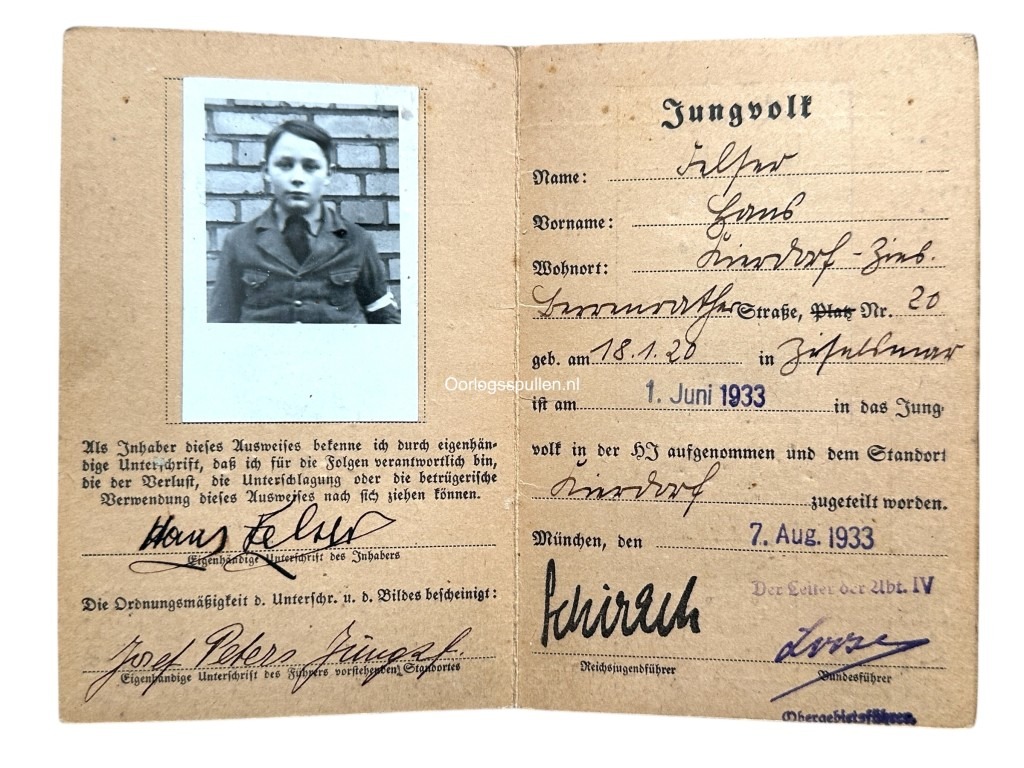 Als Inhaber dieses Ausweises bekenne ich durch eigenhän-
dige Unterschrift, daß ich für die Folgen verantwortlich bin,
die der Verlust, die Unterschlagung oder die betrügerische
Verwendung dieses Ausweises nach sich ziehen können.
Hans Felser
Eigenhändige Unterschrift des Inhabers
Die Ordnungsmäßigkeit d. Unterschr. u. d. Bildes bescheinigt:
Josef Peters Jungzf.
Eigenhändige Unterschrift des Führers vorstehenden Standortes
Oorlogsspullen.nl
Jungvolk
Name: Felser
Vorname: Hans
Wohnort: Kierdorf-Zies.
Berrenrather Straße, Platz Nr. 20
geb. am 18.1.20 in Zieselsmar
ist am 1. Juni 1933 in das Jung-
volk in der HJ aufgenommen und dem Standort
Kierdorf zugeteilt worden.
München, den 7. Aug. 1933
Schirach
Der Leiter der Abt. IV
Reichsjugendführer
Bundesführer
Obergebietsführer.